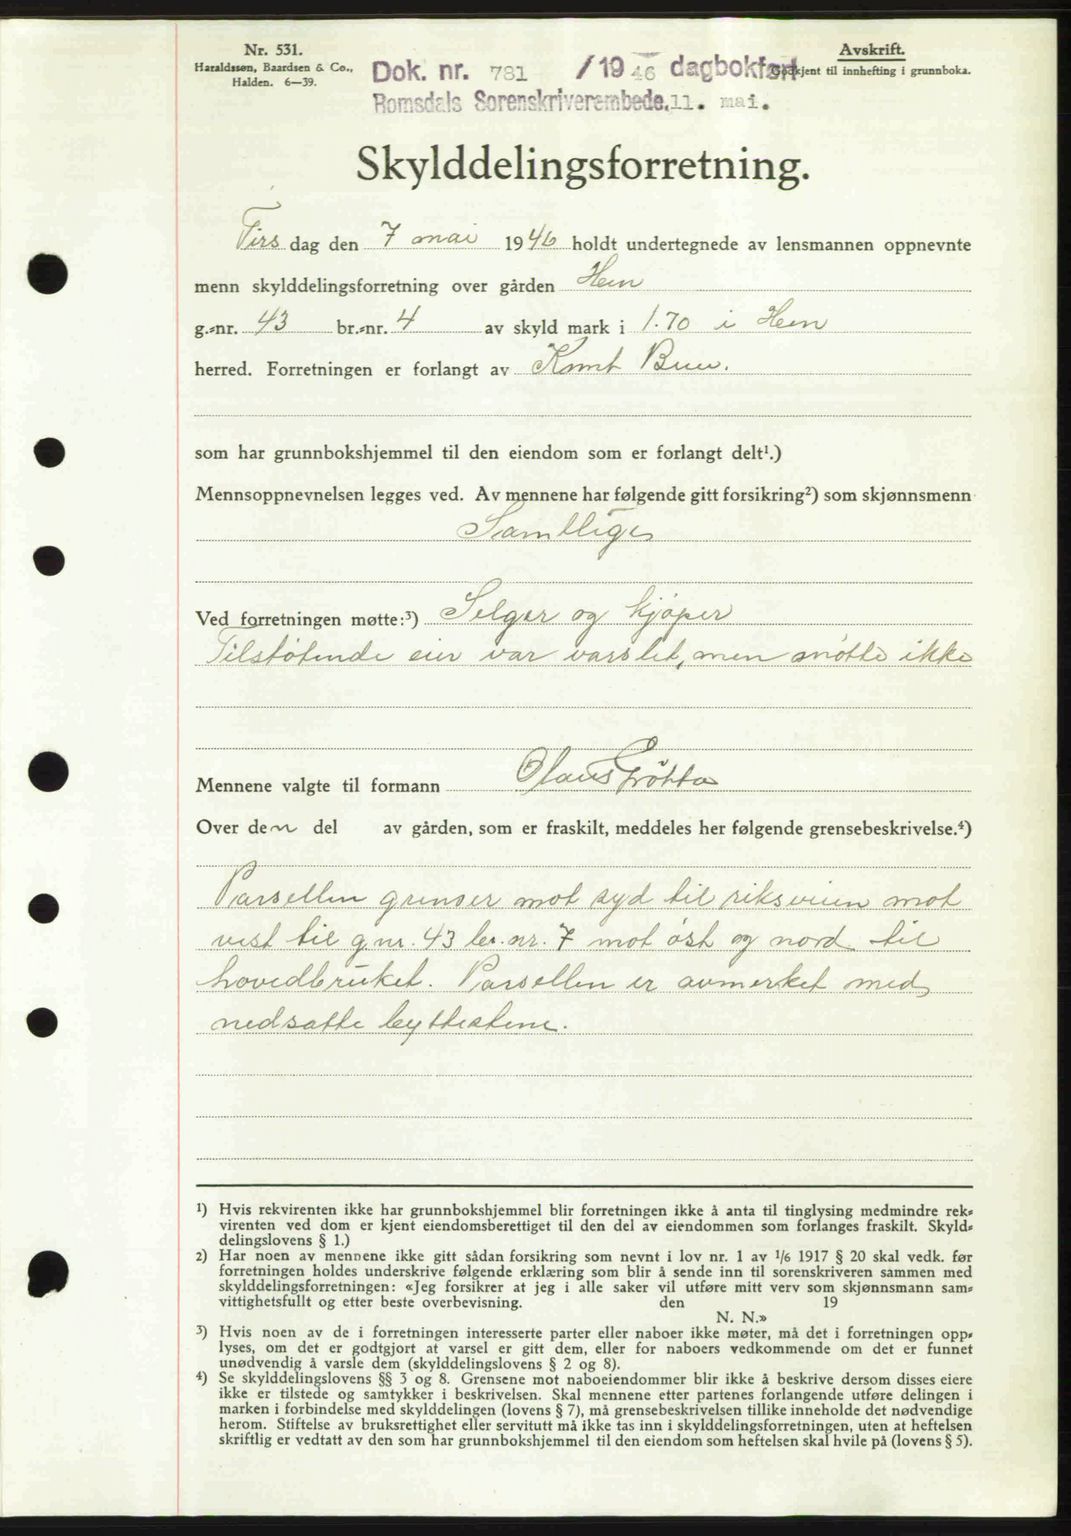 Nr. 531.
Haraldssøn, Baardsen & Co.,
Halden. 6—39.
Avskrift.
Godkjent til innhefting i grunnboka.
Dok. nr. 781 /1946 dagbokført
Romsdals Sorenskriverembede, 11. mai.
Skylddelingsforretning.
Tirs dag den 7 mai 1946 holdt undertegnede av lensmannen oppnevnte
menn skylddelingsforretning over gården Hen
g.=nr. 43 br.=nr. 4 av skyld mark i 1.70 i Hen
herred. Forretningen er forlangt av Knut Bru.
som har grunnbokshjemmel til den eiendom som er forlangt delt¹.)
Mennsoppnevnelsen legges ved. Av mennene har følgende gitt forsikring²) som skjønnsmenn
Samtlige
Ved forretningen møtte:³) Selger og kjøper
Tilstøtende eier var varslet, men møtte ikke
Mennene valgte til formann Olaus Grøtta
Over den del av gården, som er fraskilt, meddeles her følgende grensebeskrivelse.⁴)
Parsellen grenser mot syd til riksveien mot
vest til g.nr. 43 br.nr. 7 mot øst og nord til
hovedbruket. Parsellen er avmerket med
nedsatte byttestene.
¹) Hvis rekvirenten ikke har grunnbokshjemmel blir forretningen ikke å anta til tinglysing medmindre rek=
virenten ved dom er kjent eiendomsberettiget til den del av eiendommen som forlanges fraskilt. Skyld=
delingslovens § 1.)
²) Har noen av mennene ikke gitt sådan forsikring som nevnt i lov nr. 1 av ¹/6 1917 § 20 skal vedk. før
forretningen holdes underskrive følgende erklæring som blir å sende inn til sorenskriveren sammen med
skylddelingsforretningen: «Jeg forsikrer at jeg i alle saker vil utføre mitt verv som skjønnsmann sam=
vittighetsfullt og etter beste overbevisning. den 19
N. N.»
³) Hvis noen av de i forretningen interesserte parter eller naboer ikke møter, må det i forretningen opp=
lyses, om det er godtgjort at varsel er gitt dem, eller for naboers vedkommende om det er funnet
unødvendig å varsle dem (skylddelingslovens § 2 og 8).
⁴) Se skylddelingslovens §§ 3 og 8. Grensene mot naboeiendommer blir ikke å beskrive dersom disses eiere
ikke er tilstede og samtykker i beskrivelsen. Skal mennene etter partenes forlangende utføre delingen i
marken i forbindelse med skylddelingen (lovens § 7), må grensebeskrivelsen tillike inneholde det nødvendige
herom. Stiftelse av bruksrettighet eller servitutt må ikke tas inn i skylddelingsforretningen, uten at heftelsen
skriftlig er vedtatt av den som har grunnbokshjemmel til den eiendom som heftelsen skal hvile på (lovens § 5).